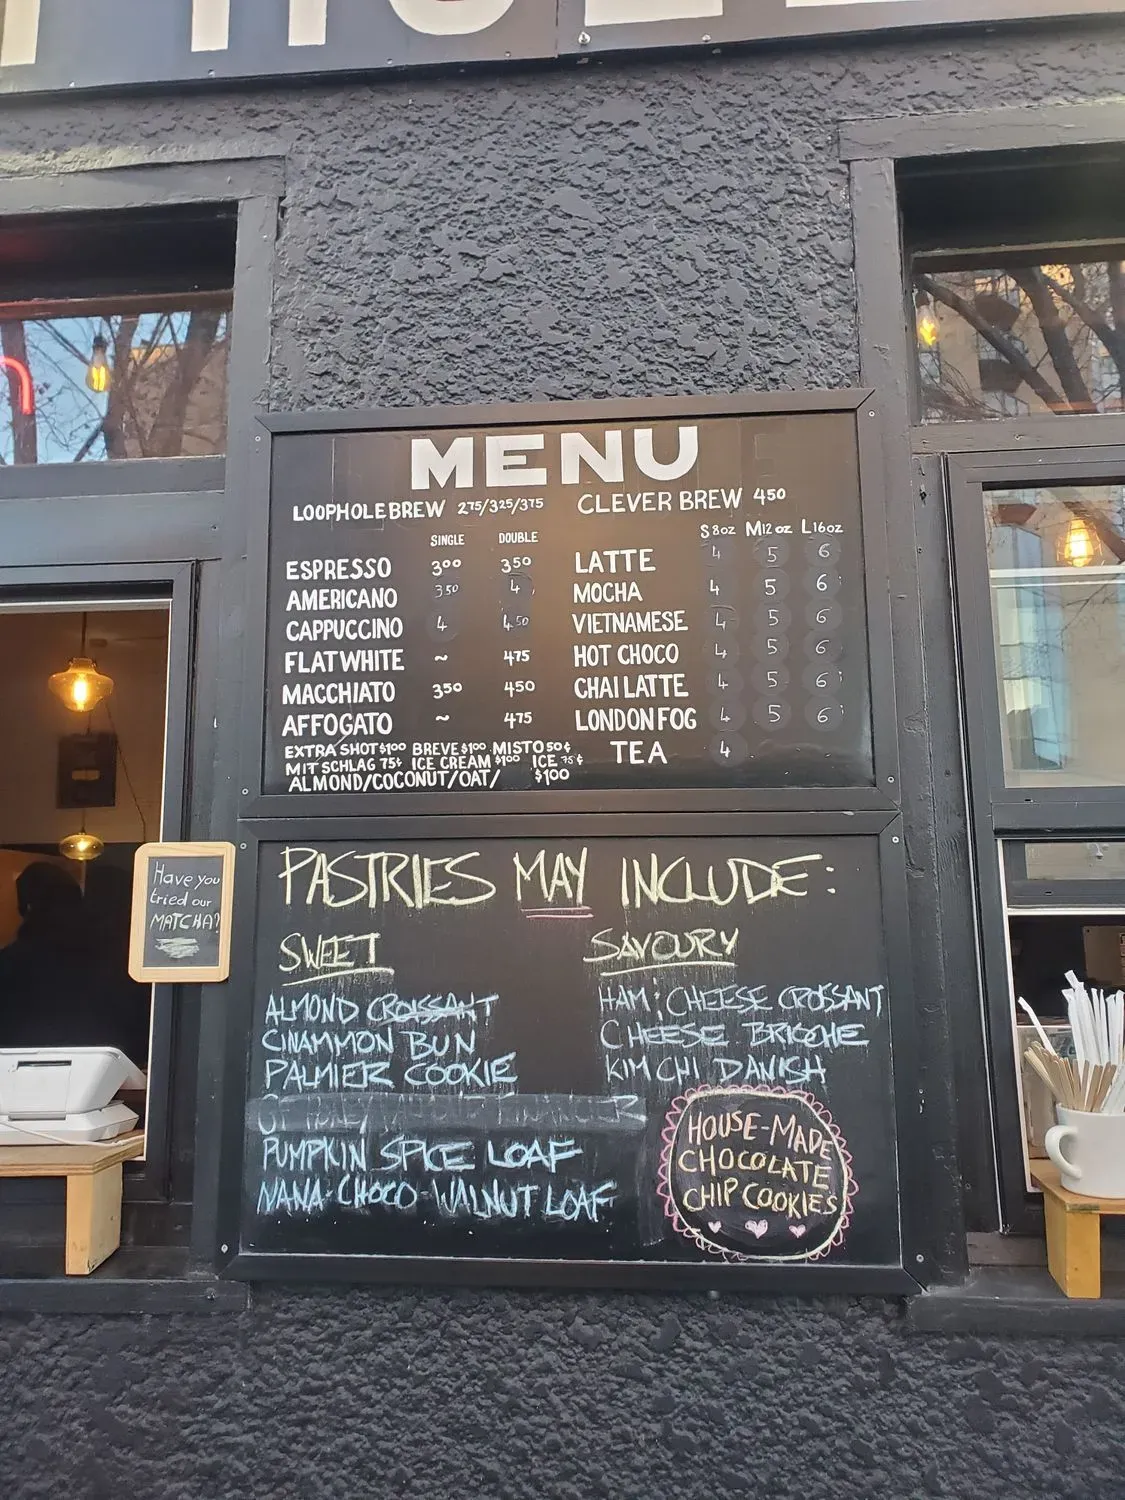 MENU
LOOPHOLE BREW 275/325/375 CLEVER BREW 450
SINGLE DOUBLE
ESPRESSO 3⁰⁰ 3⁵⁰
AMERICANO 3⁵⁰ 4
CAPPUCCINO 4 4.50
FLAT WHITE ~ 475
MACCHIATO 3⁵⁰ 450
AFFOGATO ~ 475
EXTRA SHOT $1⁰⁰ BREVE $1⁰⁰ MISTO 50¢
MIT SCHLAG 75¢ ICE CREAM $1⁰⁰ ICE 75¢
ALMOND/COCONUT/OAT/ $1⁰⁰
S 8oz M 12 oz L 16oz
LATTE 4 5 6
MOCHA 4 5 6
VIETNAMESE 4 5 6
HOT CHOCO 4 5 6
CHAI LATTE 4 5 6
LONDON FOG 4 5 6
TEA 4
Have you
tried our
MATCHA?
PASTRIES MAY INCLUDE:
SWEET
ALMOND CROISSANT
CINAMMON BUN
PALMIER COOKIE
PUMPKIN SPICE LOAF
NANA-CHOCO-WALNUT LOAF
SAVOURY
HAM & CHEESE CROISSANT
CHEESE BRIOCHE
KIMCHI DANISH
HOUSE-MADE
CHOCOLATE
CHIP COOKIES